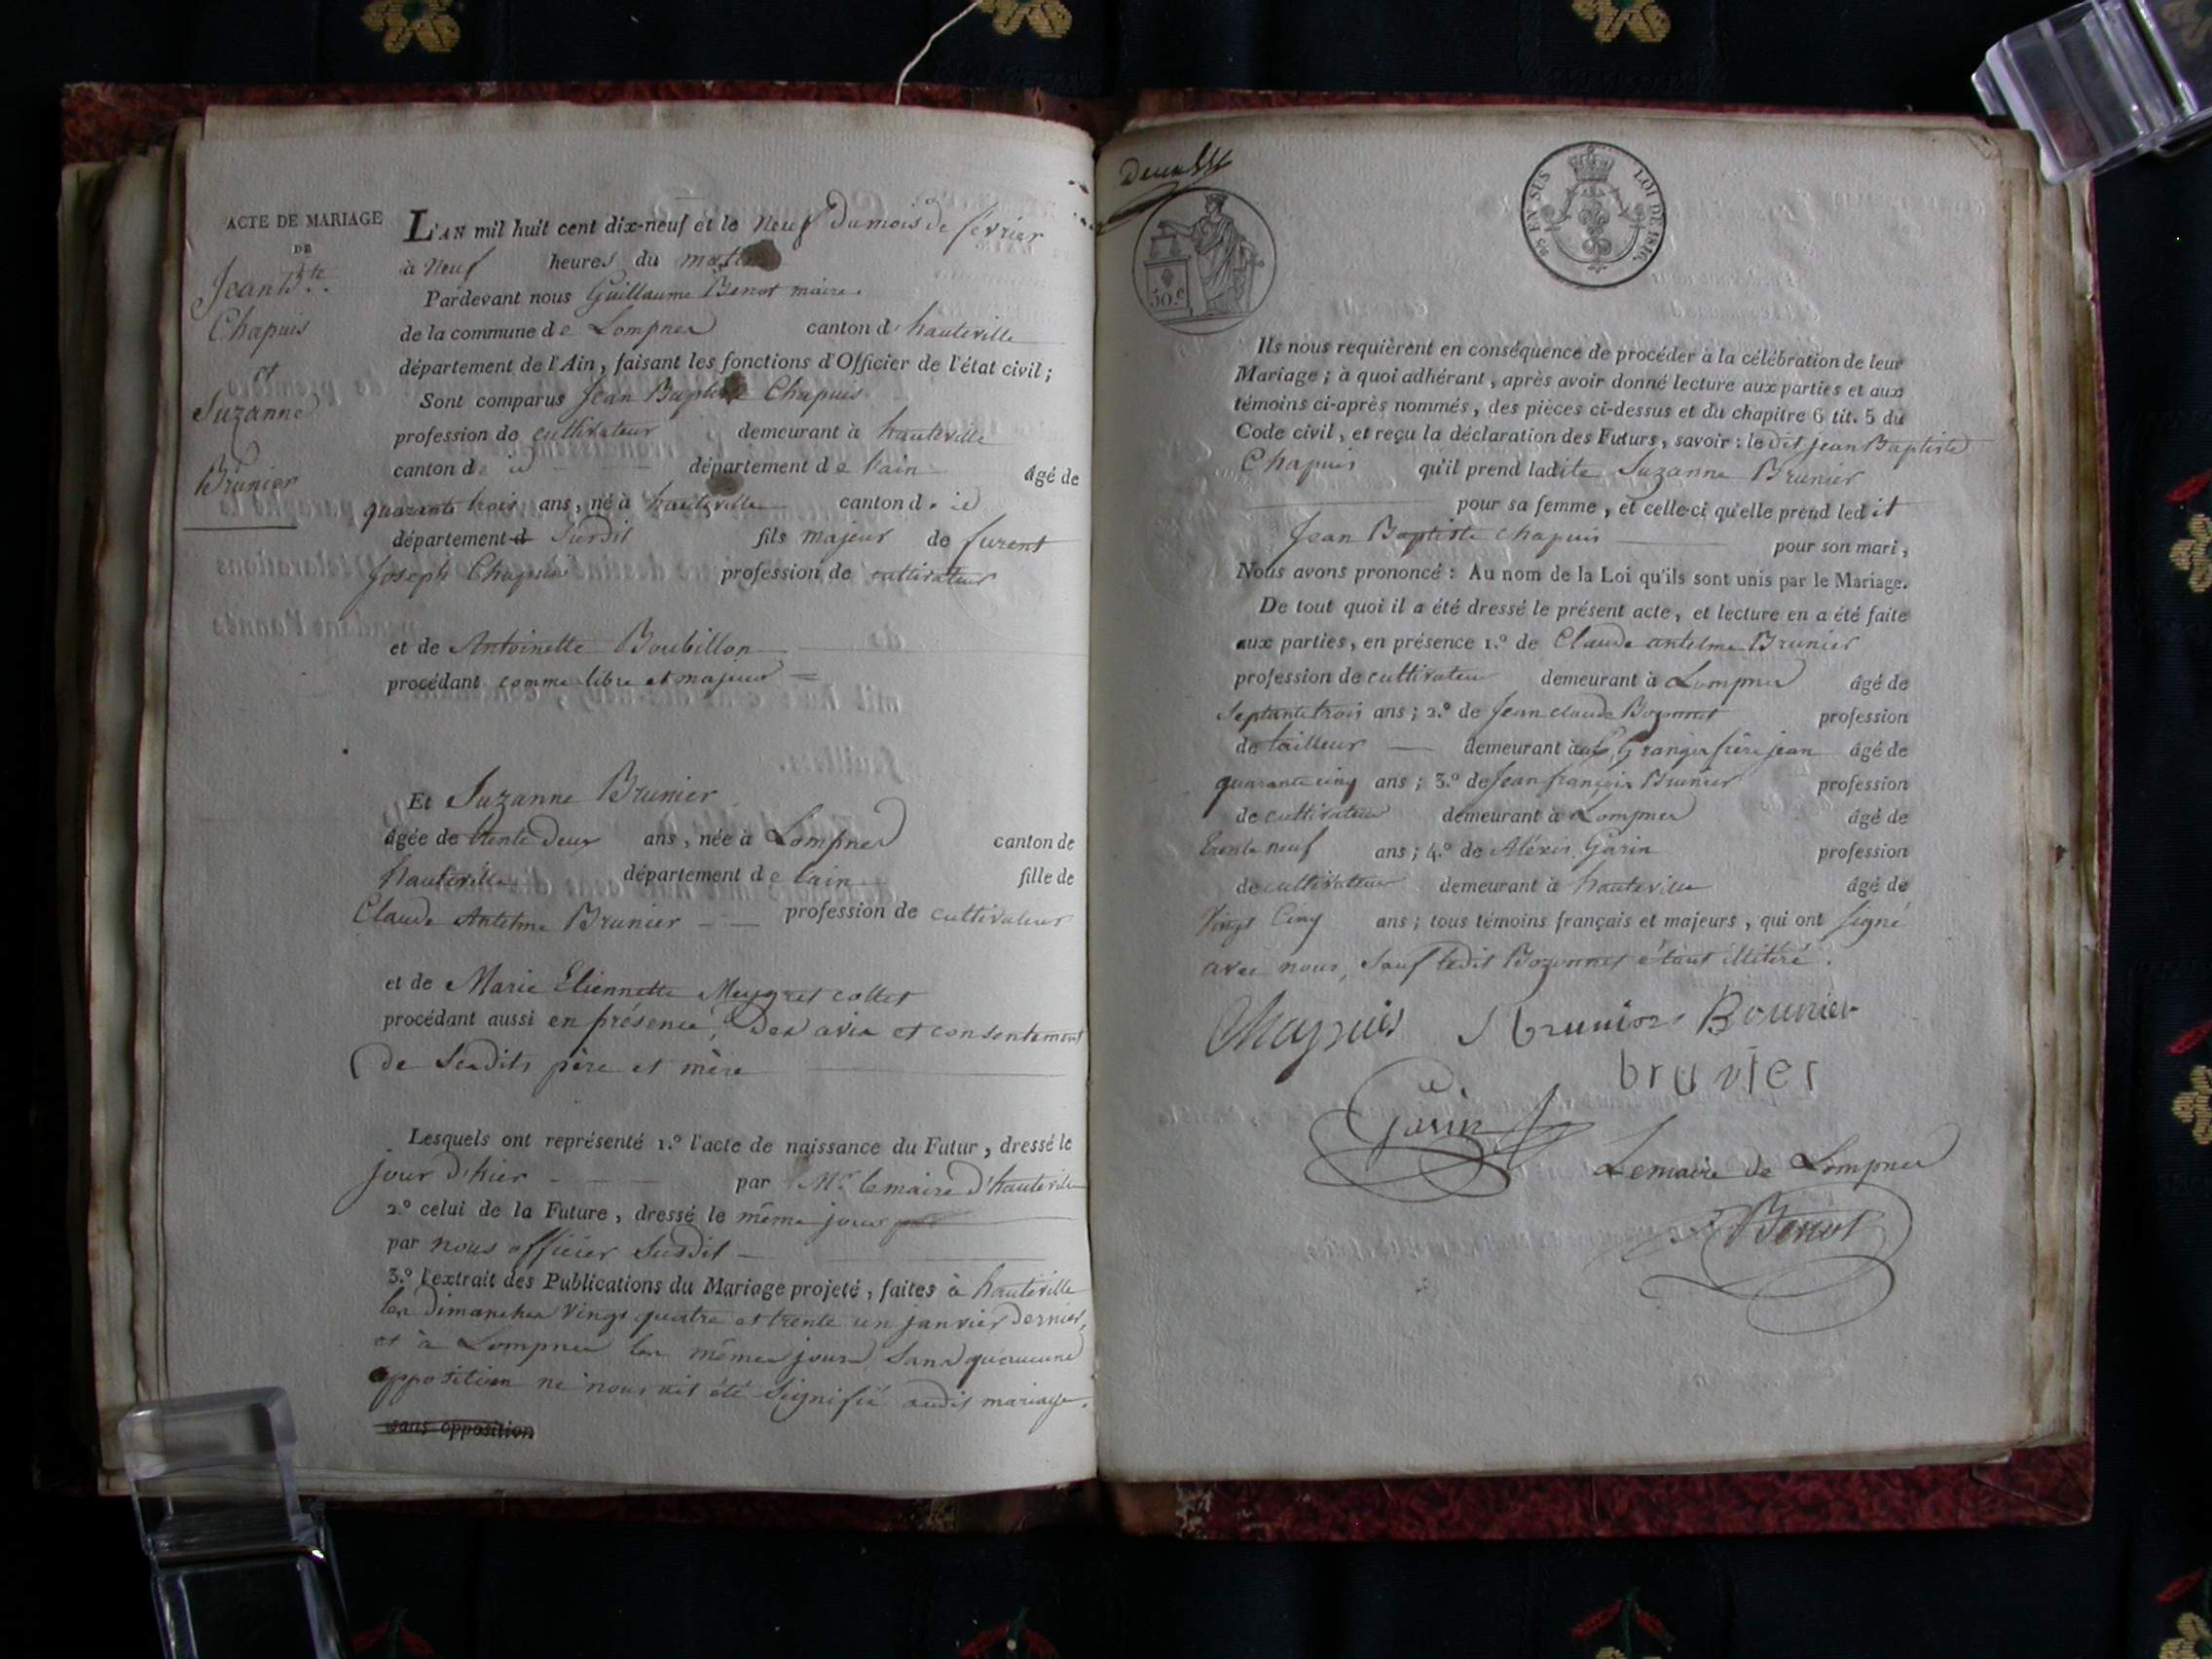 ACTE DE MARIAGE
DE
Jean Bte.
Chapuis
et
Suzanne
Brunier
L'AN mil huit cent dix-neuf et le neuf du mois de février
à neuf heures du matin
Pardevant nous Guillaume Benot maire.
de la commune de Lompnes canton d'hauteville
département de l'Ain, faisant les fonctions d'Officier de l'état civil;
Sont comparus Jean Baptiste Chapuis
profession de cultivateur demeurant à hauteville
canton de id département de l'ain âgé de
quarante trois ans, né à hauteville canton d. id
département d susdit fils majeur de furent
Joseph Chapuis profession de cultivateur
et de Antoinette Boubillon
procédant comme libre et majeur =
Et Suzanne Brunier
âgée de trente deux ans, née à Lompnes canton de
hauteville département de lain fille de
Claude Antelme Brunier profession de cultivateur
et de Marie Etiennette Meygret collet
procédant aussi en présence, des avis et consentement
de sesdits père et mère
Lesquels ont représenté 1.º l'acte de naissance du Futur, dressé le
jour d'hier par Mr. lemaire d'hauteville
2.º celui de la Future, dressé le même jour
par nous officier susdit
3.º l'extrait des Publications du Mariage projeté, faites à hauteville
les dimanches vingt quatre et trente un janvier dernier,
et à Lompnes les mêmes jours, sans qu'aucune
opposition ne nous ait été signifié audit mariage.
sans opposition
50.c
EN SUS LOI DE 1816.
Ils nous requièrent en conséquence de procéder à la célébration de leur
Mariage; à quoi adhérant, après avoir donné lecture aux parties et aux
témoins ci-après nommés, des pièces ci-dessus et du chapitre 6 tit. 5 du
Code civil, et reçu la déclaration des Futurs, savoir: le dit jean Baptiste
Chapuis qu'il prend ladite Suzanne Brunier
pour sa femme, et celle-ci qu'elle prend led it
Jean Baptiste Chapuis pour son mari,
Nous avons prononcé: Au nom de la Loi qu'ils sont unis par le Mariage.
De tout quoi il a été dressé le présent acte, et lecture en a été faite
aux parties, en présence 1.º de Claude antelme Brunier
profession de cultivateur demeurant à Lompnes âgé de
septante trois ans; 2.º de Jean claude Bozonnet profession
de tailleur demeurant au Granges frère jean âgé de
quarante cinq ans; 3.º de Jean françois Brunier profession
de cultivateur demeurant à Lompnes âgé de
trente neuf ans; 4.º de Aléxis Garin profession
de cultivateur demeurant à hauteville âgé de
vingt Cinq ans; tous témoins français et majeurs, qui ont signé
avec nous, sauf ledit Bozonnet étant illitéré.
Chapuis S brunier Brunier
bruvier
Garin
Lemaire de Lompnes
Benot